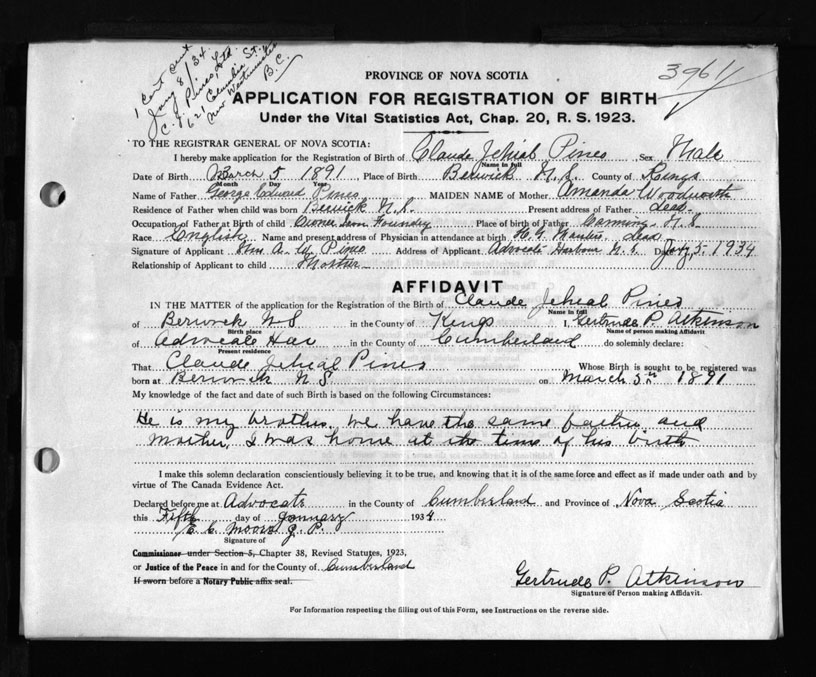 1 Cert out
Jany 8/34
C. J. Pineo, Ltd.
621 Columbia St.
New Westminster
B.C.
3961
PROVINCE OF NOVA SCOTIA
APPLICATION FOR REGISTRATION OF BIRTH
Under the Vital Statistics Act, Chap. 20, R. S. 1923.
TO THE REGISTRAR GENERAL OF NOVA SCOTIA:
I hereby make application for the Registration of Birth of Claude Jehial Pineo Sex Male
Name in full
Date of Birth March 5 1891 Place of Birth Berwick N.S. County of Kings
Month Day Year
Name of Father George Edward Pineo MAIDEN NAME of Mother Amanda Woodworth
Residence of Father when child was born Berwick N.S. Present address of Father dead
Occupation of Father at Birth of child Owner Iron Foundry Place of birth of Father Canning N.S.
Race English Name and present address of Physician in attendance at birth dead
Signature of Applicant Mrs A. Pineo Address of Applicant Advocate Harbour N.S. Date Jany 5 - 1934
Relationship of Applicant to child Mother
AFFIDAVIT
IN THE MATTER of the application for the Registration of the Birth of Claude Jehial Pineo
Name in full
of Berwick NS in the County of Kings I, Gertrude P. Atkinson
Birth place Name of person making Affidavit
of Advocate Har in the County of Cumberland do solemnly declare:
Present residence
That Claude Jehial Pineo Whose Birth is sought to be registered was
born at Berwick N S on March 5th 1891
My knowledge of the fact and date of such Birth is based on the following Circumstances:
He is my brother. We have the same father and
mother. I was home at the time of his birth
I make this solemn declaration conscientiously believing it to be true, and knowing that it is of the same force and effect as if made under oath and by
virtue of The Canada Evidence Act.
Declared before me at Advocate in the County of Cumberland and Province of Nova Scotia
this Fifth day of January 1934
E. C. Moore J. P.
Signature of
Commissioner under Section 5, Chapter 38, Revised Statutes, 1923,
or Justice of the Peace in and for the County of Cumberland
If sworn before a Notary Public affix seal.
Gertrude P. Atkinson
Signature of Person making Affidavit.
For Information respecting the filling out of this Form, see Instructions on the reverse side.